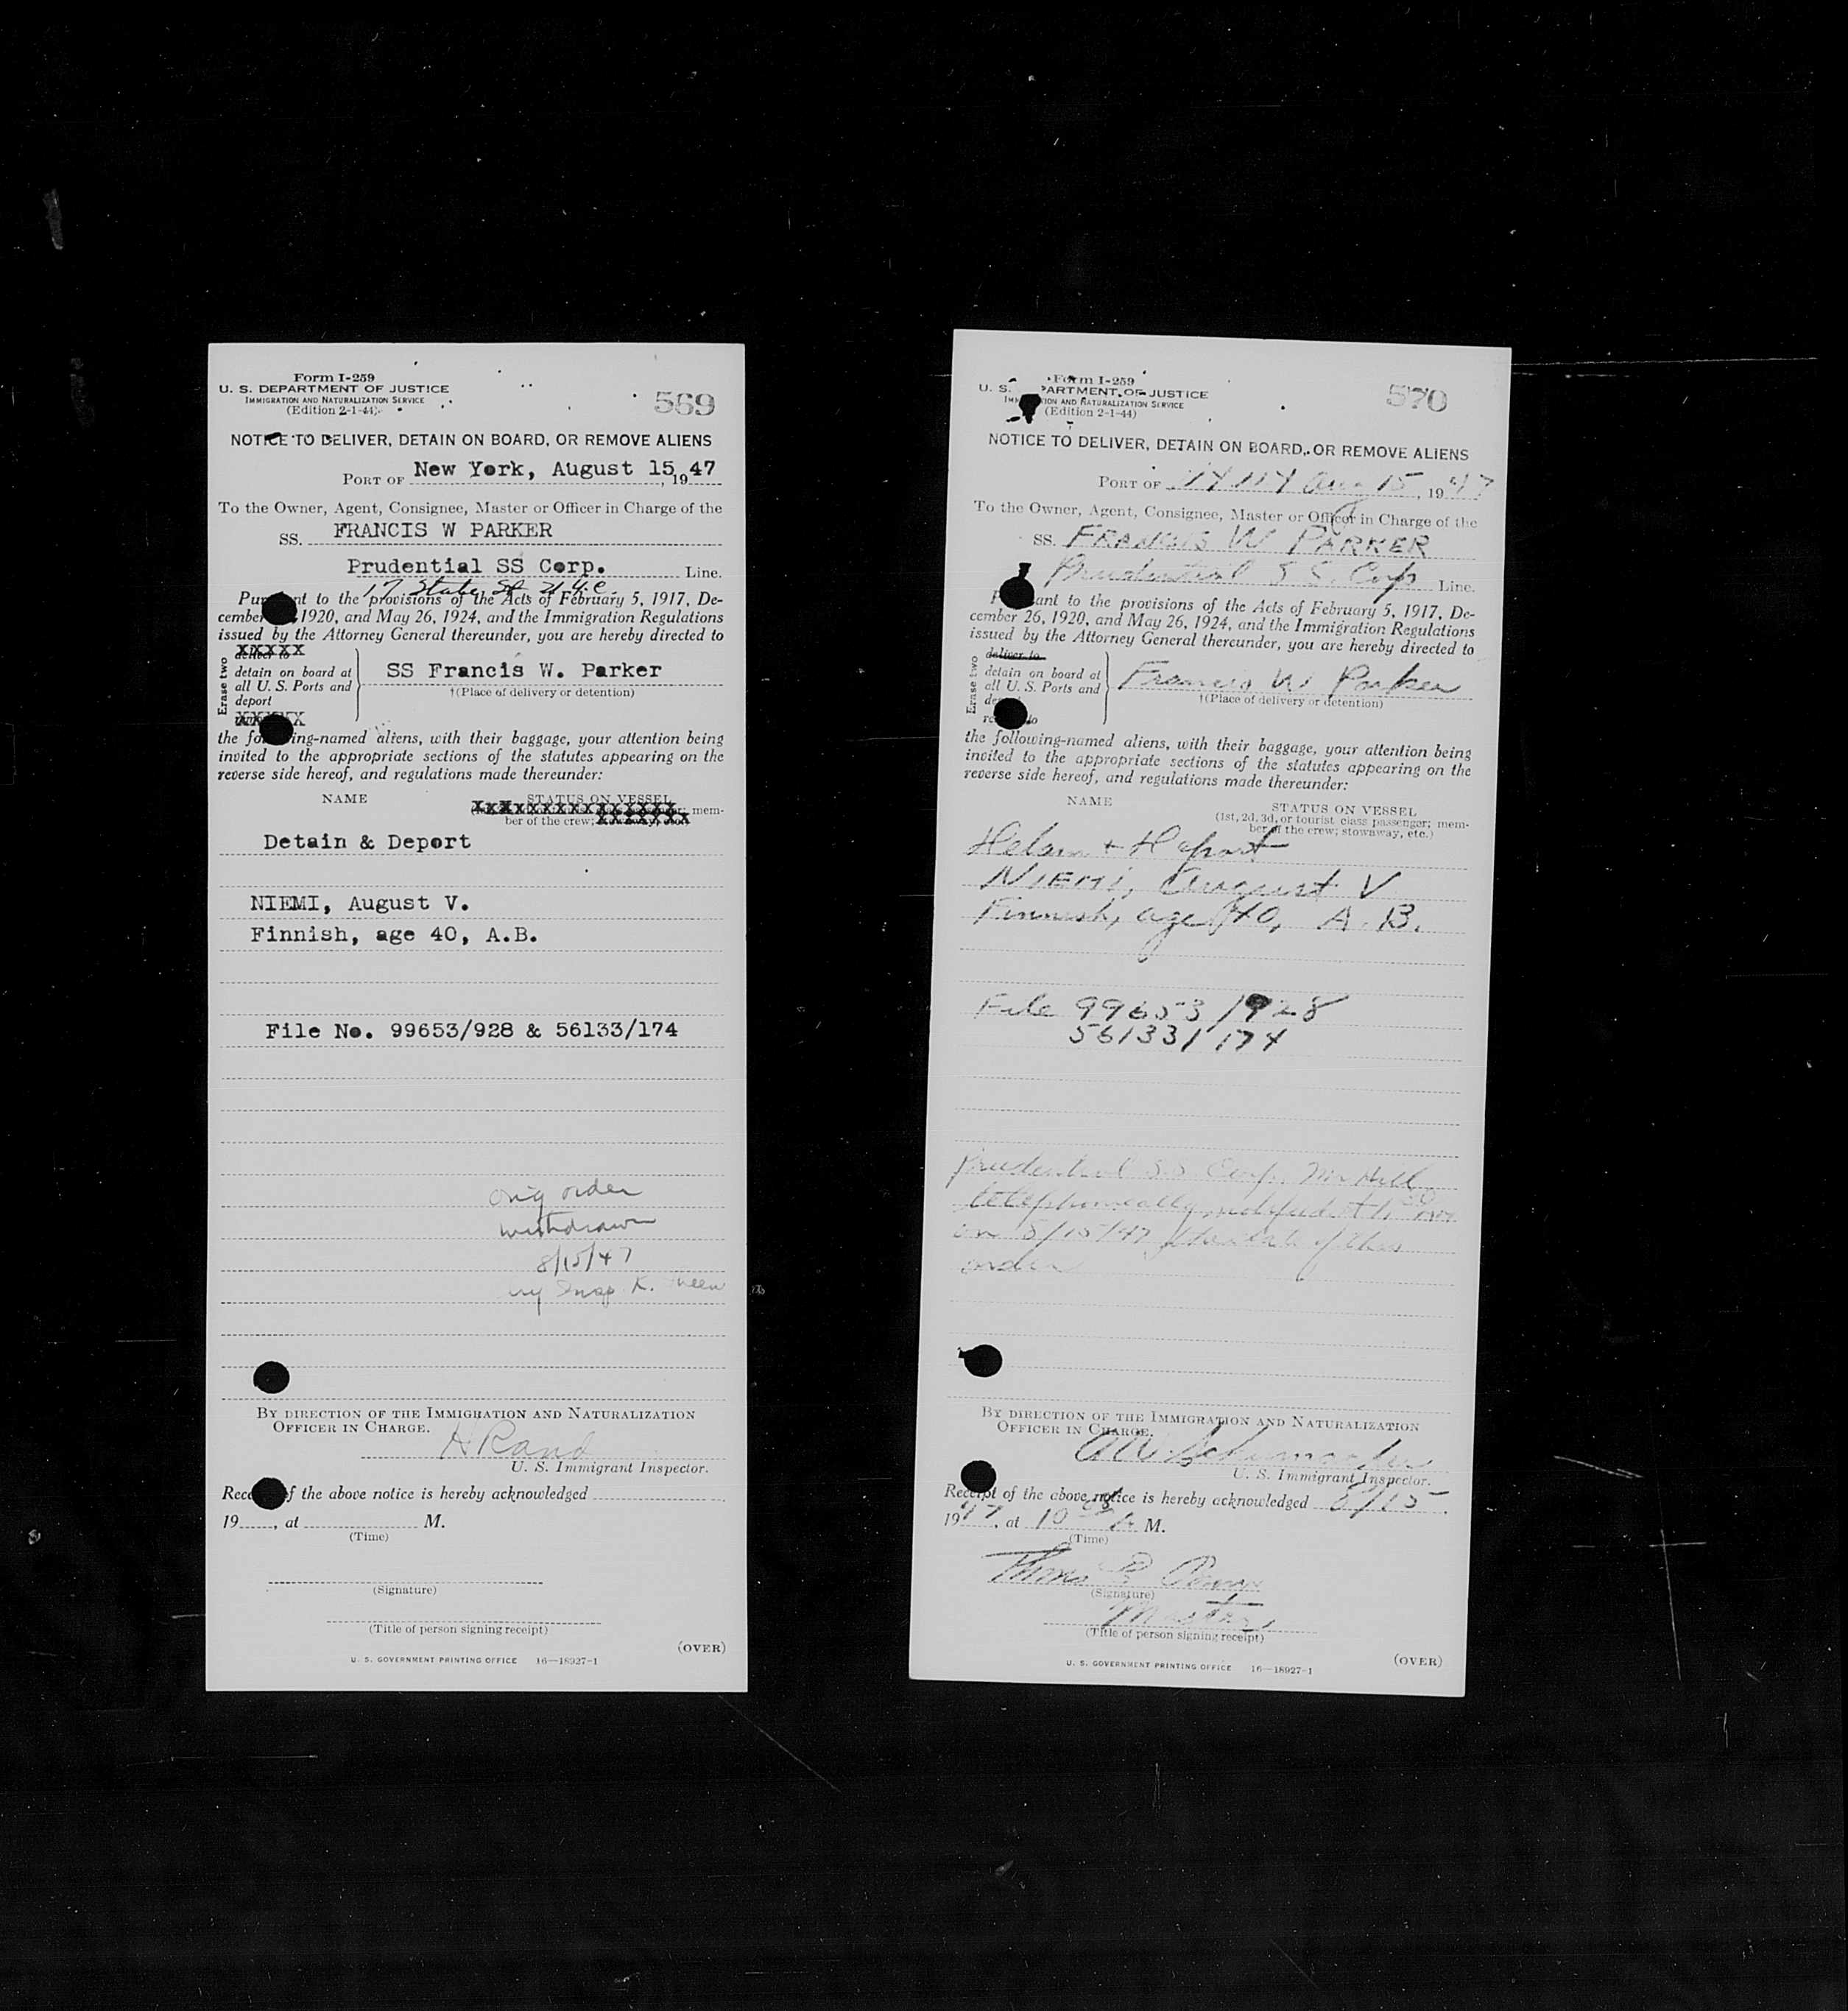 Form I-259
U. S. DEPARTMENT OF JUSTICE
IMMIGRATION AND NATURALIZATION SERVICE
(Edition 2-1-44)
569
NOTICE TO DELIVER, DETAIN ON BOARD, OR REMOVE ALIENS
PORT OF New York, August 15, 1947
To the Owner, Agent, Consignee, Master or Officer in Charge of the
SS. FRANCIS W PARKER
Prudential SS Corp. Line.
17 State St
Pursuant to the provisions of the Acts of February 5, 1917, De-
cember 1920, and May 26, 1924, and the Immigration Regulations
issued by the Attorney General thereunder, you are hereby directed to
Erase two
deliver to
detain on board at
all U. S. Ports and
deport
SS Francis W. Parker
†(Place of delivery or detention)
the following-named aliens, with their baggage, your attention being
invited to the appropriate sections of the statutes appearing on the
reverse side hereof, and regulations made thereunder:
NAME
STATUS ON VESSEL
mem-
ber of the crew;
Detain & Deport
NIEMI, August V.
Finnish, age 40, A.B.
File No. 99653/928 & 56133/174
orig order
withdrawn
8/15/47
Insp K.
BY DIRECTION OF THE IMMIGRATION AND NATURALIZATION
OFFICER IN CHARGE.
H Rand
U. S. Immigrant Inspector.
Receipt of the above notice is hereby acknowledged
19 , at M.
(Time)
(Signature)
(Title of person signing receipt)
(OVER)
U. S. GOVERNMENT PRINTING OFFICE 16—18927-1
Form I-259
U. S. DEPARTMENT OF JUSTICE
IMMIGRATION AND NATURALIZATION SERVICE
(Edition 2-1-44)
570
NOTICE TO DELIVER, DETAIN ON BOARD, OR REMOVE ALIENS
PORT OF Aug 15, 1947
To the Owner, Agent, Consignee, Master or Officer in Charge of the
SS. FRANCIS W PARKER
Prudential S S. Corp Line.
Pursuant to the provisions of the Acts of February 5, 1917, De-
cember 26, 1920, and May 26, 1924, and the Immigration Regulations
issued by the Attorney General thereunder, you are hereby directed to
Erase two
deliver to
detain on board at
all U. S. Ports and
Francis W Parker
†(Place of delivery or detention)
the following-named aliens, with their baggage, your attention being
invited to the appropriate sections of the statutes appearing on the
reverse side hereof, and regulations made thereunder:
NAME
STATUS ON VESSEL
(1st, 2d, 3d, or tourist class passenger; mem-
ber of the crew; stowaway, etc.)
NIEMI, August V
Finnish, age 40, A.B.
File 99653/928
56133/174
Prudential S.S. Corp. Mr Hill
telephonically notified at
on 8/15/47 of this
order
BY DIRECTION OF THE IMMIGRATION AND NATURALIZATION
OFFICER IN CHARGE.
U. S. Immigrant Inspector.
Receipt of the above notice is hereby acknowledged 8/15
1947, at 10 A M.
(Time)
(Signature)
Master
(Title of person signing receipt)
(OVER)
U. S. GOVERNMENT PRINTING OFFICE 16—18927-1